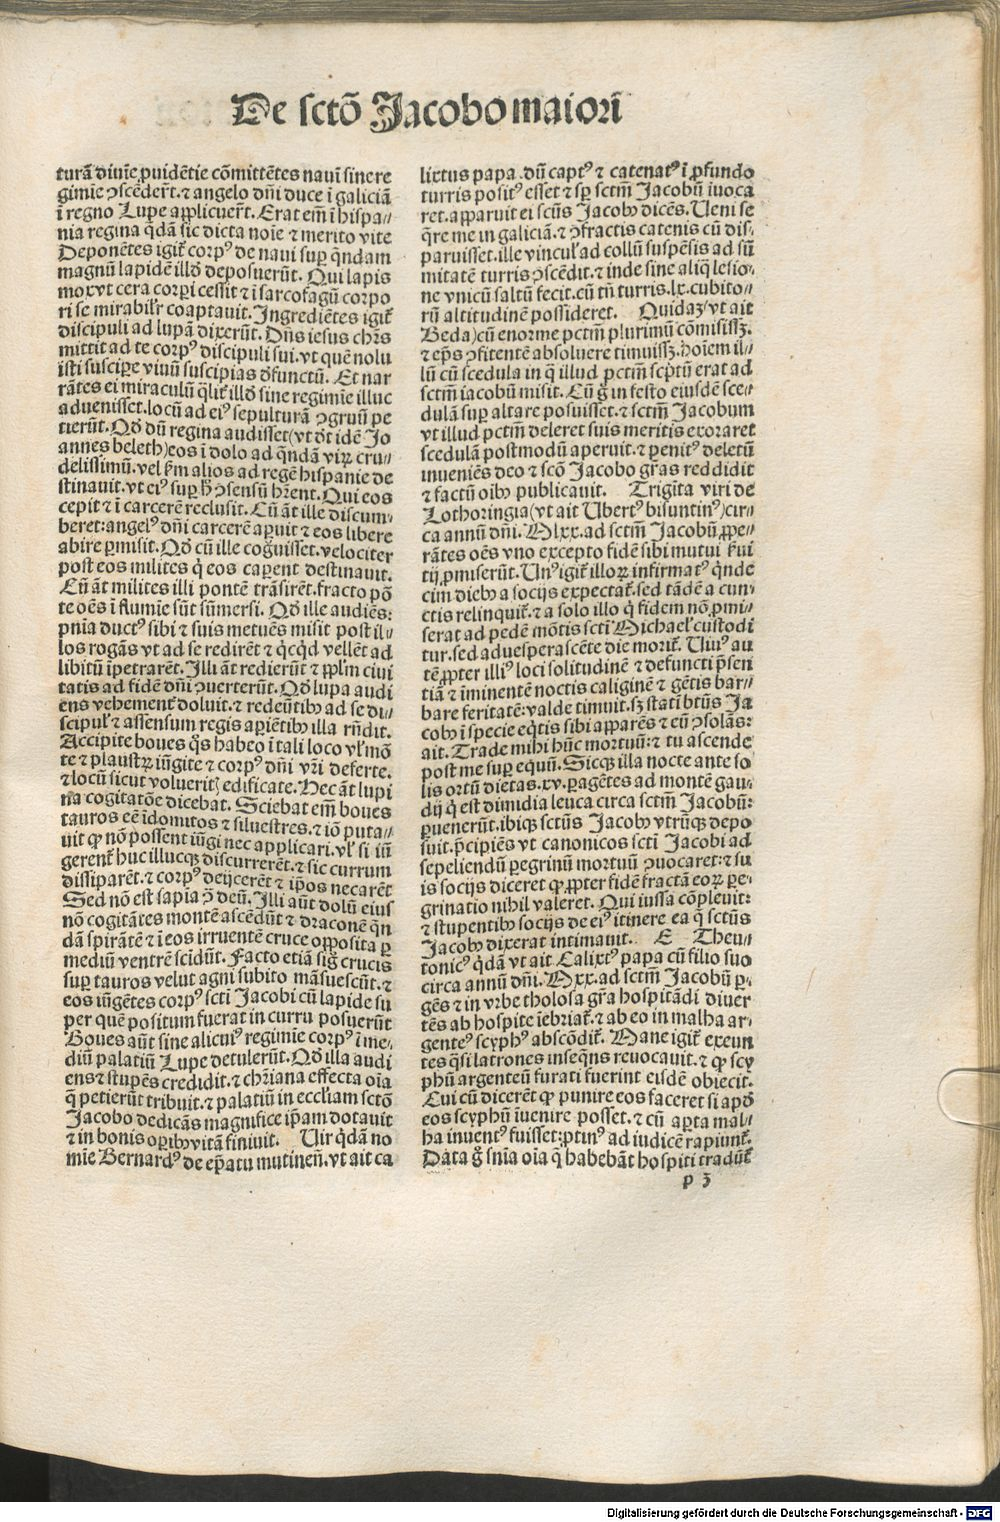 De sctō Jacobo maiori
turā diuīe ꝓuidētie cōmittētes nauī sine re
gimīe ↄscēder̄t. ⁊ angelo dn̄i duce ī galiciā
ī regno Lupe applicuer̄t. Erat em̄ ī hispa⸗
nia regina q̄dā sic dicta noīe ⁊ merito vite
Deponētes igit᷑ corpꝰ de naui suꝑ q̄ndam
magnū lapidē illd̄ deposuerūt. Qui lapis
mox vt cera corpori cessit ⁊ ī sarcofagū corpo
ri se mirabilr̄ coaptauit. Ingrediētes igit᷑
discipuli ad lupā dixerūt. Dn̄s iesus chr̄s
mittit ad te corpꝰ discipuli sui. vt quē nolu
isti suscipere viuū suscipias d̄functū. Et nar
rātes ei miraculū q̄lit᷑ illd̄ sine regimīe illuc
aduenisset. locū ad eiꝰ sepulturā ↄgruū pe
tierūt. Qd̄ dū regina audisset (vt d̄t idē Jo
annes beleth) eos ī dolo ad q̄ndā viꝝ cru⸗
delissimū. vel s̄m alios ad regē hispanie de
stinauit. vt eiꝰ suꝑ h̄ ↄsensū hr̄ent. Qui eos
cepit ⁊ ī carcerē reclusit. Cū āt ille discum⸗
beret: angelꝰ dn̄i carcerē aꝑuit ⁊ eos libere
abire ꝑmisit. Qd̄ cū ille cognuisset. velociter
post eos milites q̇ eos caꝑent destinauit.
Cū āt milites illi pontē trāsirēt. fracto pō
te oēs ī flumīe sūt sūmersi. Qd̄ ille audiēs:
pn̄ia ductꝰ sibi ⁊ suis metuēs misit post il⸗
los rogās vt ad se redirēt ⁊ q̇cqd̄ vellēt ad
libitū īpetrarēt. Illi āt redierūt ⁊ pplm̄ ciui
tatis ad fidē dn̄i ↄuerterūt. Qd̄ lupa audi
ens vehement᷑ doluit. ⁊ redeūtibꝫ ad se di⸗
scipulꝰ ⁊ assensum regis aꝑiētibꝫ illa rn̄dit.
Accipite boues q̄s habeo ī tali loco vꝉ mō
te ⁊ plaustꝝ iūgite ⁊ corpꝰ dn̄i vr̄i deferte.
⁊ locū sicut volueritꝭ edificate. Hec āt lupi
na cogitatōe dicebat. Sciebat em̄ boues
tauros eē īdomitos ⁊ siluestres. ⁊ iō puta⸗
uit ꝙ nō possent iūgi nec applicari. vꝉ si iū
gerent᷑ huc illucqꝫ discurrerēt. ⁊ sic currum
dissiparēt. ⁊ corpꝰ deijcerēt ⁊ ip̄os necarēt
Sed nō est sapia ↄ̄ deū. Illi aūt dolū eius
nō cogitātes montē ascēdūt ⁊ draconē q̄n
dā spirātē ⁊ ī eos irruentē cruce opposita ꝑ
mediū ventrē scidūt. Facto etiā sig᷑ crucis
suꝑ tauros velut agni subito māsuescūt. ⁊
eos iūgētes corpꝰ scti Jacobi cū lapide su
per quē positum fuerat in curru posuerūt
Boues aūt sine alicuiꝰ regimīe corpꝰ ī me⸗
diū palatiū Lupe detulerūt. Qd̄ illa audi
ens ⁊ stupēs credidit. ⁊ chr̄iana effecta oīa
q̄ petierūt tribuit. ⁊ palatiū in eccl̄iam sctō
Jacobo dedicās magnifice ip̄am dotauit
⁊ in bonis oꝑibꝫ vitā finiuit. Uir q̄dā no
mīe Bernardꝰ de ep̄atu mutineñ. vt ait ca
lixtus papa. dū captꝰ ⁊ catenatꝰ ī ꝓfundo
turris positꝰ esset ⁊ sꝑ sctm̄ Jacobū īuoca
ret. apparuit ei sctūs Jacobꝫ dicēs. Ueni se
q̄re me in galiciā. ⁊ ↄfractis catenis cū dis⸗
paruisset. ille vinculꝰ ad collū suspēsis ad sū
mitatē turris ↄscēdit. ⁊ inde sine aliq̄ lesio⸗
ne vnicū saltū fecit. cū tn̄ turris .lx. cubito⸗
rū altitudinē possideret. Quidaꝫ (vt ait
Beda) cū enorme pctm̄ plurimū cōmisissꝫ.
⁊ ep̄s ↄfitentē absoluere timuissꝫ. hoīem il⸗
lū cū scedula in q̄ illud pctm̄ scptū erat ad
sctm̄ iacobū misit. Cū g̊ in festo eiusdē sce⸗
dulā suꝑ altare posuisset. ⁊ sctm̄ Jacobum
vt illud pctm̄ deleret suis meritis exoraret
scedulam postmodū aperuit. ⁊ penitꝰ deletū
inueniēs deo ⁊ sctō Jacobo grās reddidit
⁊ factū oībꝫ publicauit. Trigīta viri de
Lothoringia (vt ait Ubertꝰ bisuntinꝰ) cir⸗
ca annū dn̄i. Mlxx. ad sctm̄ Jacobū prope⸗
rātes oēs vno excepto fidē sibi mutui s̄ui
tij ꝓmiserūt. Unꝰ igit᷑ illoꝝ infirmatꝰ q̇nde
cim diebꝫ a socijs expectat᷑. sed tādē a cun⸗
ctis relinquit᷑. ⁊ a solo illo q̇ fidem nō ꝓmi⸗
serat ad pedē mōtis scti Michael᷑ custodi
tur. sed aduesperascēte die morit᷑. Uiuꝰ au
tē ꝓpter illiꝰ loci solitudinē ⁊ defuncti p̄sen
tiā ⁊ īminentē noctis caliginē ⁊ gētis bar⸗
bare feritatē: valde timuit. sꝫ statī btūs Ja
cobꝫ ī specie eq̇tis sibi apparēs ⁊ eū ↄsolās:
ait. Trade mihi hūc mortuū: ⁊ tu ascende
post me suꝑ equū. Sicqꝫ illa nocte ante so
lis ortū dietas .xv. pagētes ad montē gau⸗
dij q̇ est dimidia leuca circa sctm̄ Jacobū:
ꝑuenerūt. ibiqꝫ sctūs Jacobꝫ vtrūqꝫ depo
suit. p̄cipiēs vt canonicos scti Jacobi ad
sepeliendū peregrinū mortuū ↄuocaret: ⁊ su
is socijs diceret ꝙ ꝓpter fidē fractā eoꝝ pe⸗
grinatio nihil valeret. Qui iussa cōpleuit:
⁊ stupentibꝫ socijs de eiꝰ itinere ea q̄ sctūs
Jacobꝫ dixerat intimauit. E Theu⸗
tonicꝰ q̄dā vt ait Calixtꝰ papa cū filio suo
circa annū dn̄i. Mxx. ad sctm̄ Jacobū ꝑ⸗
gēs ⁊ in vrbe tholosa gr̄a hospitādi diuer
tēs ab hospite īebriat᷑. ⁊ ab eo in malha ar⸗
genteꝰ scyphꝰ abscōdit᷑. Mane igit᷑ exeun
tes q̄si latrones inseq̄ns reuocauit. ⁊ ꝙ scy
phū argenteū furati fuerint eisdē obiecit.
Cui cū dicerēt ꝙ punire eos faceret si apd̄
eos scyphū inuenire posset. ⁊ cū aperta mal⸗
ha inuentꝰ fuisset: ꝓtinꝰ ad iudicē rapiunt᷑.
Data g̊ sn̄ia oīa q̄ habebāt hospiti tradūt᷑
p 3
Digitalisierung gefördert durch die Deutsche Forschungsgemeinschaft - DFG